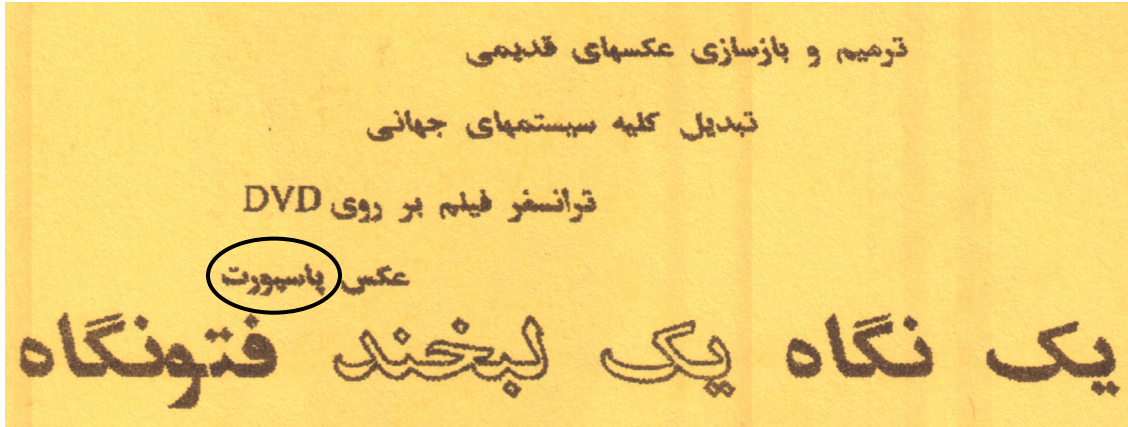 ترمیم و بازسازی عکسهای قدیمی
تبدیل کلیه سیستمهای جهانی
ترانسفر فیلم بر روی DVD
عکس پاسپورت
یک نگاه یک لبخند فتونگاه